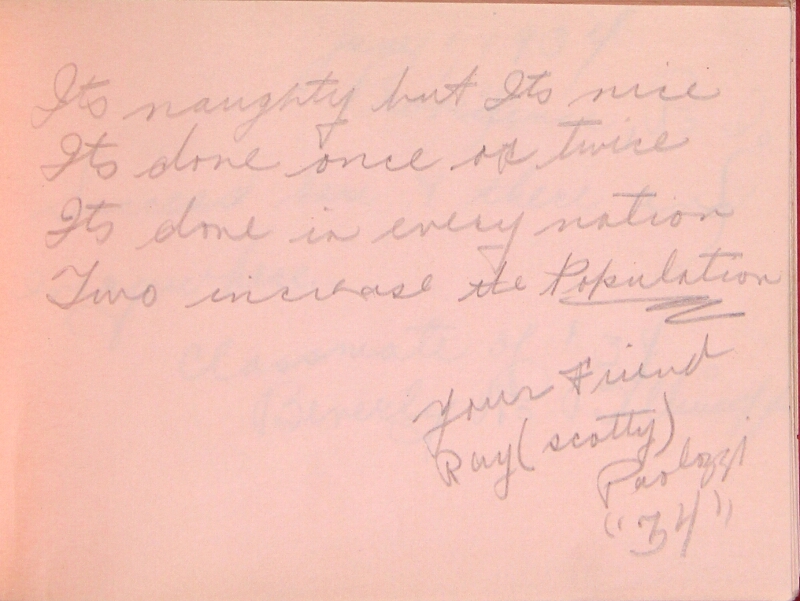 Its naughty but Its nice
Its done once or twice
Its done in every nation
Two increase the Population
your Friend
Ray (scotty)
Paolozzi
"34"